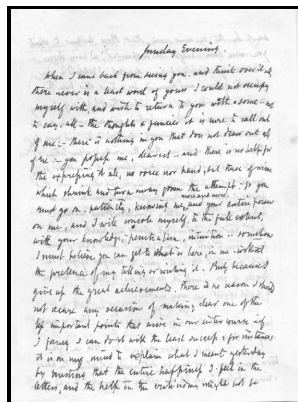 Sunday Evening.
When I come back from seeing you, and think over it all,
there never is a least word of yours I could not occupy
myself with, and wish to return to you with some .. not
to say .. all .. the thoughts & fancies it is sure to call out
of me: - there is nothing in you that does not draw out all
of me: - you possess me, dearest .. and there is no help for
the expressing it all, no voice nor hand, but these of mine
which shrink and turn away from the attempt. So you
must go on, patiently, knowing me, more and more, and your entire power
on me, and I will console myself, to the full extent,
with your knowledge, penetration, intuition .. somehow
I must believe you can get to what is here, in me, without
the pretence of my telling or writing it. But, because I
give up the great achievements, there is no reason I should
not secure any occasion of making clear one of the
less important points that arise in our intercourse .. if
I fancy I can do it with the least success; for instance,
it is on my mind to explain what I meant yesterday
by trusting that the entire happiness I feel in the
letters, and the help in the criticising might not be